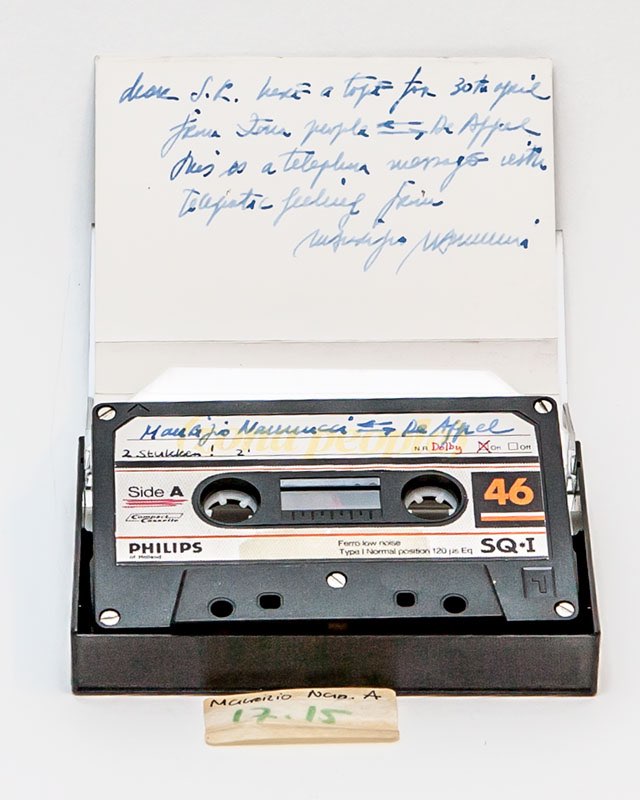 dear S.K. here a tape for 30th april
from Zona people ⇆ De Appel
this is a telephon message with
telepatic feeling from
Maurizio Nannucci
Maurizio Nannucci ⇆ De Appel
Zona people
2 stukken! 2'
N R Dolby On Off
Side A
Compact Cassette
46
PHILIPS
of Holland
Ferro low noise
Type I Normal position 120 µs Eq
SQ·I
Maurizio Nan. A
17.15